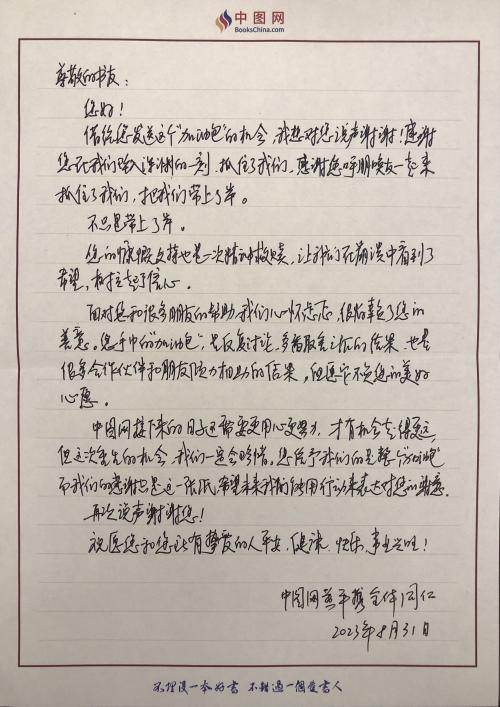 中图网
BooksChina.com
尊敬的书友：
您好！
借给您发送这个“加油包”的机会，我想对您说声谢谢！感谢
您在我们坠入深渊的一刻，抓住了我们，感谢您呼朋唤友一起来
抓住了我们，把我们带上了岸。
不只是带上了岸。
您的慷慨支持也是一次精神救赎，让我们在荆棘中看到了
希望，树立起了信心。
面对您和很多朋友的帮助，我们心怀忐忑，很怕辜负了您的
善意。您手中的“加油包”，是反复讨论，多番取舍之后的结果，也是
很多合作伙伴和朋友倾力相助的结果，但愿它不负您的美好
心愿。
中图网接下来的日子还需要更用心更努力，才有机会走得更远，
但这次重生的机会，我们一定会珍惜。您给予我们的是整个“加油包”
而我们的感谢也是这一张纸，希望未来我们能用行动来表达对您的谢意。
再次说声谢谢您！
祝愿您和您所有挚爱的人平安、健康、快乐、事业兴旺！
中图网黄平携全体同仁
2023年8月31日
不埋没一本好書 不錯過一個愛書人